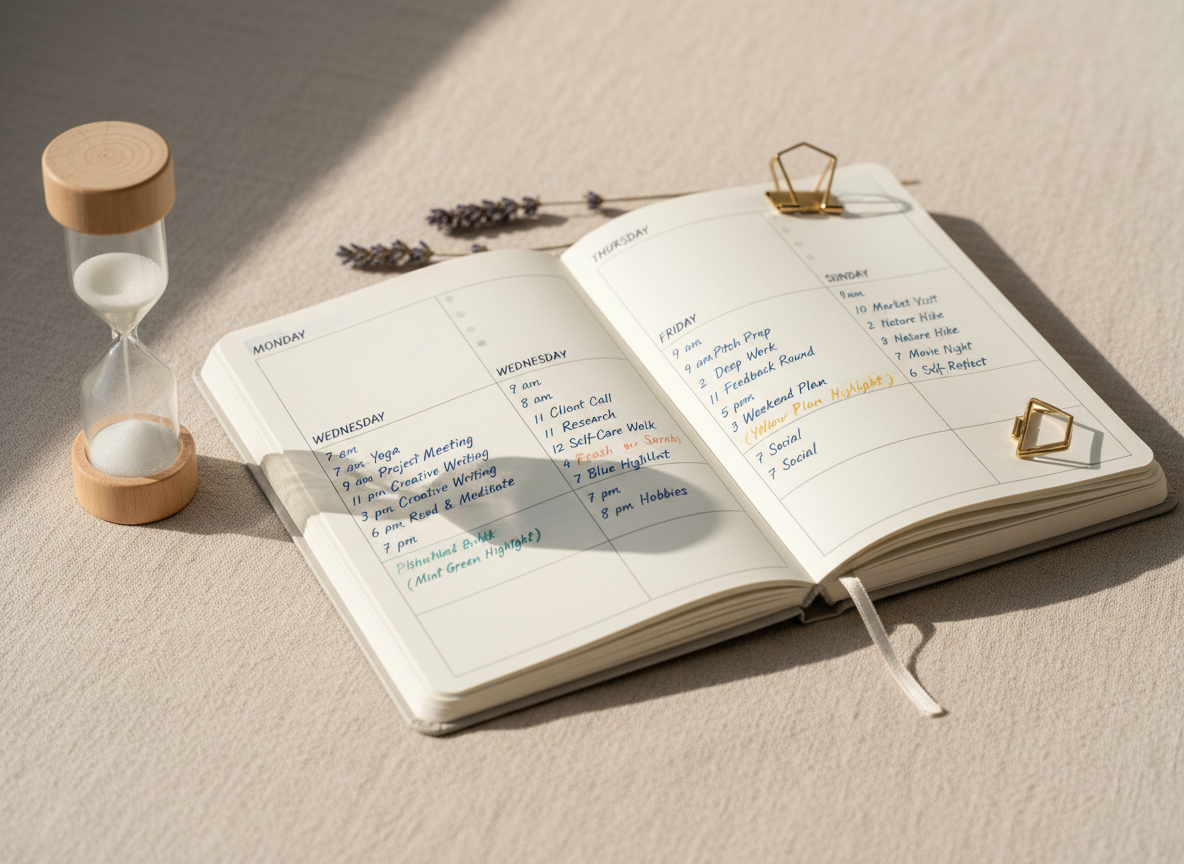 MONDAY
WEDNESDAY
7 am
7 am Yoga
9 am Project Meeting
11 pm Creative Writing
3 pm Creative Writing
6 pm Read & Medibate
7 pm
(Mint Green Highlight)
WEDNESDAY
9 am
8 am
11 Client Call
11 Research
12 Self-Care Welk
4
7 Blue
7 pm
8 pm Hobbies
THURSDAY
FRIDAY
9 am
9 am Pitch Prep
2 Deep Work
11 Feedback Round
5 pm
3 Weekend Plan
(Yellow Plan Highlight)
7 Social
7 Social
7
SUNDAY
9 am
10 Market Visit
2 Netore Hike
3 Nature Hike
7 Movie Night
6 Self-Reflect